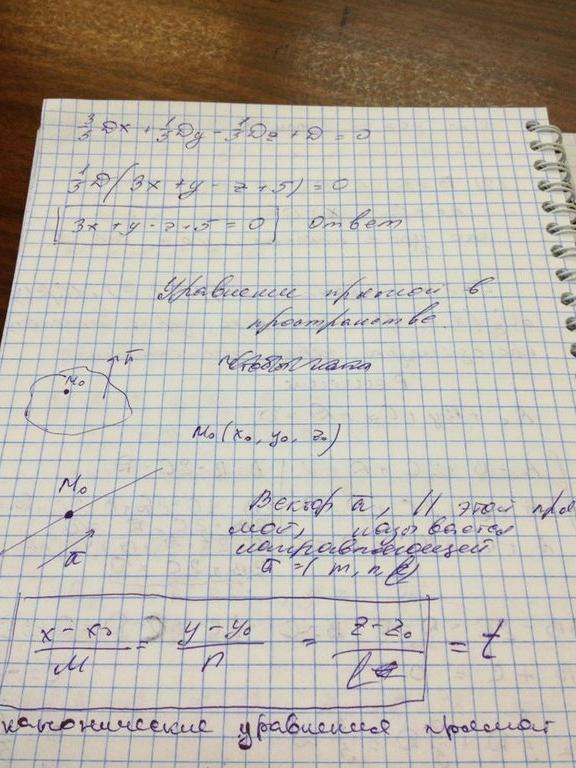 3/5 Dx + 1/5 Dy - 1/5 Dz + D = 0
1/5 D(3x + y - z + 5) = 0
[3x + y - z + 5 = 0] ответ
Уравнение прямой в
пространстве.
n̄
M₀
M₀(x₀, y₀, z₀)
M₀
ā
Вектор ā, || этой пря
мой, называется
направляющей
ā = (m, n, l)
x - x₀ / m = y - y₀ / n = z - z₀ / l = t
канонические уравнения прямой